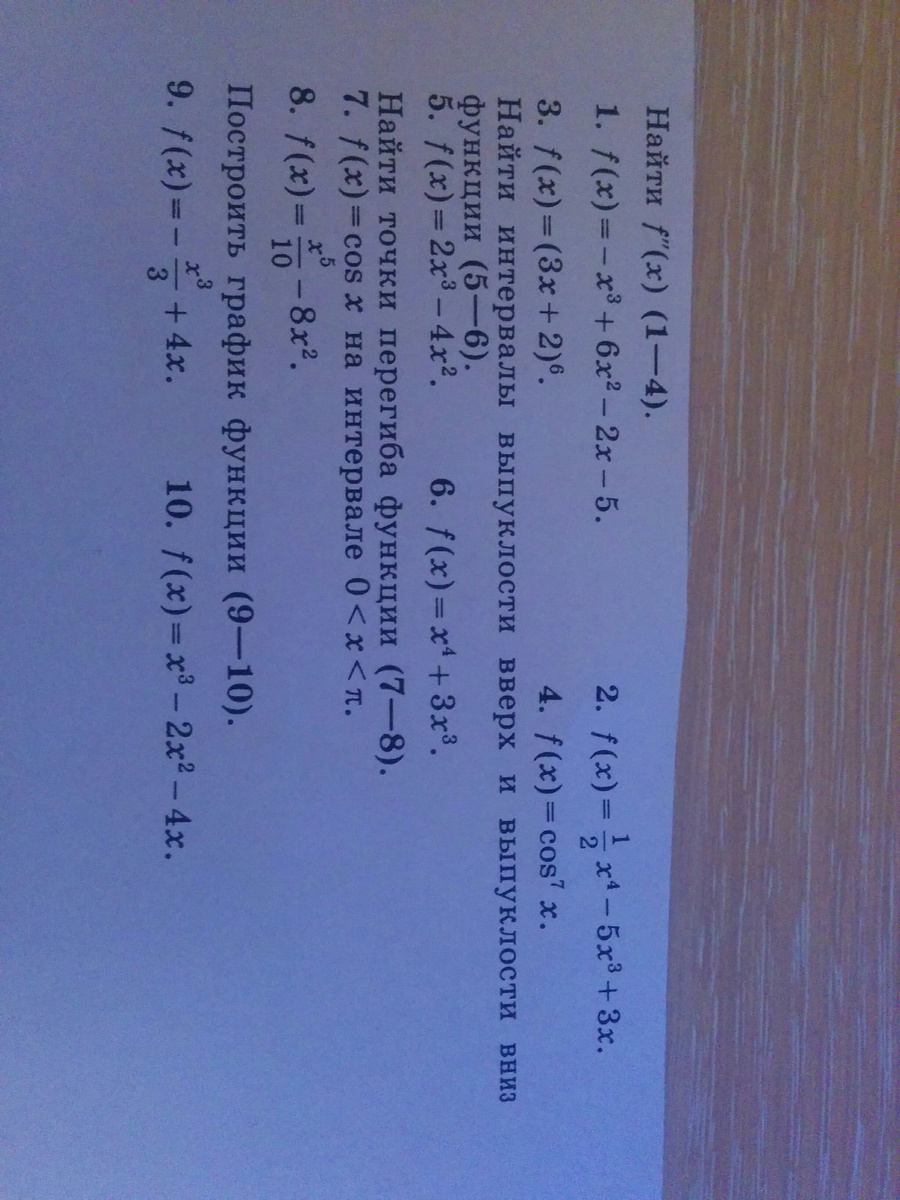 Найти f″(x) (1—4).
1. f(x) = − x³ + 6x² − 2x − 5. 2. f(x) = 1/2 x⁴ − 5x³ + 3x.
3. f(x) = (3x + 2)⁶. 4. f(x) = cos⁷ x.
Найти интервалы выпуклости вверх и выпуклости вниз
функции (5—6).
5. f(x) = 2x³ − 4x². 6. f(x) = x⁴ + 3x³.
Найти точки перегиба функции (7—8).
7. f(x) = cos x на интервале 0 < x < π.
8. f(x) = x⁵/10 − 8x².
Построить график функции (9—10).
9. f(x) = − x³/3 + 4x. 10. f(x) = x³ − 2x² − 4x.